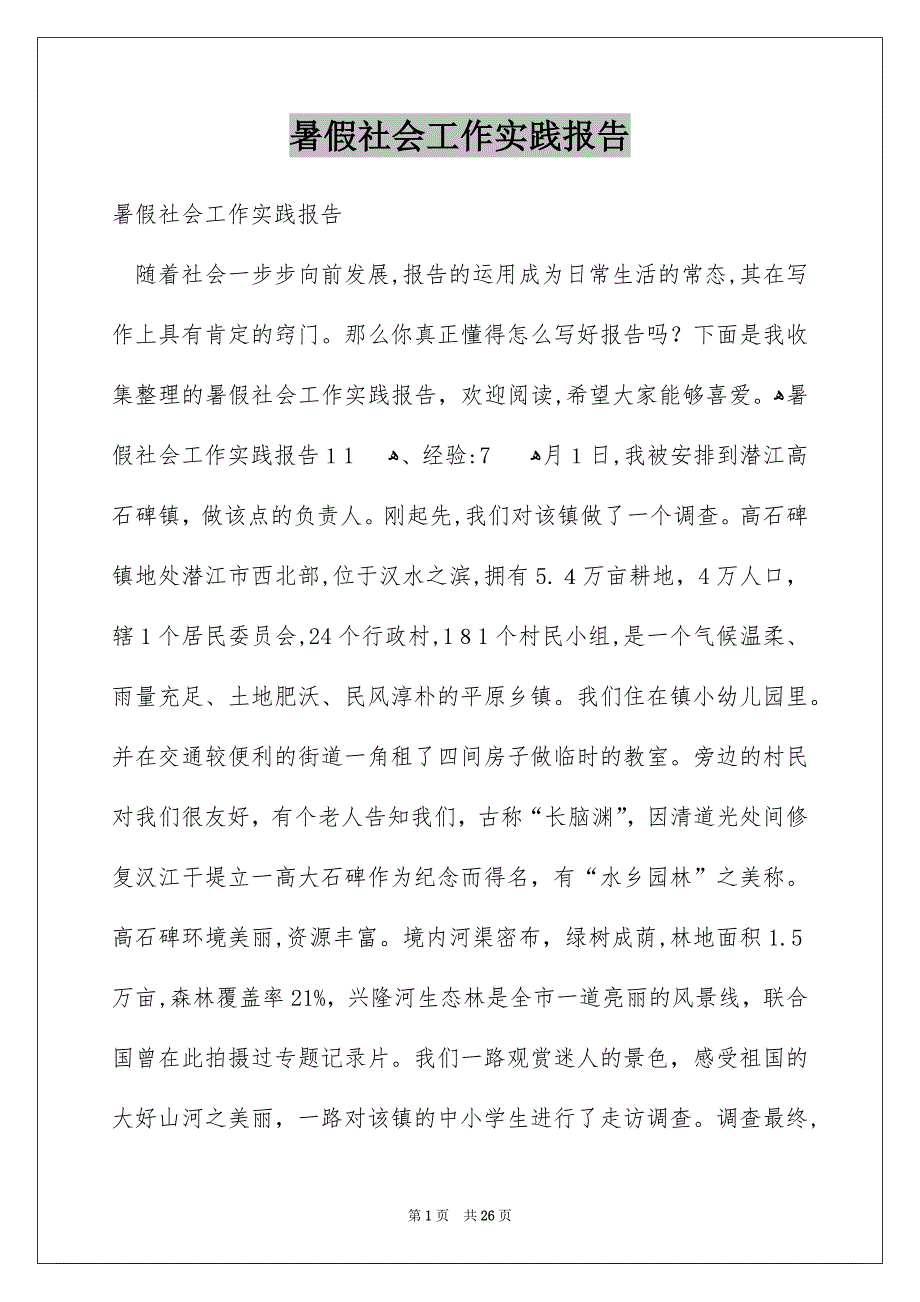 暑假社会工作实践报告
暑假社会工作实践报告
随着社会一步步向前发展,报告的运用成为日常生活的常态,其在写
作上具有肯定的窍门。那么你真正懂得怎么写好报告吗？下面是我收
集整理的暑假社会工作实践报告，欢迎阅读,希望大家能够喜爱。ﻫ暑
假社会工作实践报告11 ﻫ、经验:7 ﻫ月1日,我被安排到潜江高
石碑镇，做该点的负责人。刚起先,我们对该镇做了一个调查。高石碑
镇地处潜江市西北部,位于汉水之滨,拥有5.4万亩耕地，4万人口，
辖1个居民委员会,24个行政村,181个村民小组,是一个气候温柔、
雨量充足、土地肥沃、民风淳朴的平原乡镇。我们住在镇小幼儿园里。
并在交通较便利的街道一角租了四间房子做临时的教室。旁边的村民
对我们很友好，有个老人告知我们，古称“长脑渊”，因清道光处间修
复汉江干堤立一高大石碑作为纪念而得名，有“水乡园林”之美称。
高石碑环境美丽,资源丰富。境内河渠密布，绿树成荫,林地面积1.5
万亩,森林覆盖率21%，兴隆河生态林是全市一道亮丽的风景线，联合
国曾在此拍摄过专题记录片。我们一路观赏迷人的景色，感受祖国的
大好山河之美丽，一路对该镇的中小学生进行了走访调查。调查最终,
第1页 共26页